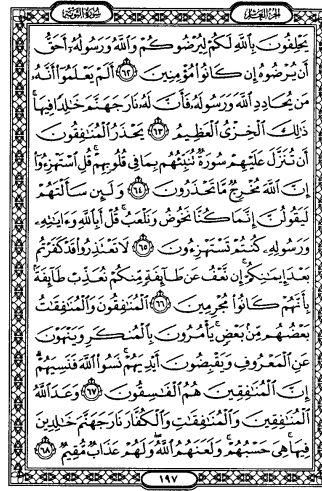 سورة التوبة
الجزء العاشر
يَحْلِفُونَ بِٱللَّهِ لَكُمْ لِيُرْضُوكُمْ وَٱللَّهُ وَرَسُولُهُۥٓ أَحَقُّ
أَن يُرْضُوهُ إِن كَانُوا۟ مُؤْمِنِينَ ٦٢ أَلَمْ يَعْلَمُوٓا۟ أَنَّهُۥ
مَن يُحَادِدِ ٱللَّهَ وَرَسُولَهُۥ فَأَنَّ لَهُۥ نَارَ جَهَنَّمَ خَٰلِدًا فِيهَا
ذَٰلِكَ ٱلْخِزْىُ ٱلْعَظِيمُ ٦٣ يَحْذَرُ ٱلْمُنَٰفِقُونَ
أَن تُنَزَّلَ عَلَيْهِمْ سُورَةٌ تُنَبِّئُهُم بِمَا فِى قُلُوبِهِمْ قُلِ ٱسْتَهْزِءُوٓا۟
إِنَّ ٱللَّهَ مُخْرِجٌ مَّا تَحْذَرُونَ ٦٤ وَلَئِن سَأَلْتَهُمْ
لَيَقُولُنَّ إِنَّمَا كُنَّا نَخُوضُ وَنَلْعَبُ قُلْ أَبِٱللَّهِ وَءَايَٰتِهِۦ
وَرَسُولِهِۦ كُنتُمْ تَسْتَهْزِءُونَ ٦٥ لَا تَعْتَذِرُوا۟ قَدْ كَفَرْتُم
بَعْدَ إِيمَٰنِكُمْ إِن نَّعْفُ عَن طَآئِفَةٍ مِّنكُمْ نُعَذِّبْ طَآئِفَةًۢ
بِأَنَّهُمْ كَانُوا۟ مُجْرِمِينَ ٦٦ ٱلْمُنَٰفِقُونَ وَٱلْمُنَٰفِقَٰتُ
بَعْضُهُم مِّنۢ بَعْضٍ يَأْمُرُونَ بِٱلْمُنكَرِ وَيَنْهَوْنَ
عَنِ ٱلْمَعْرُوفِ وَيَقْبِضُونَ أَيْدِيَهُمْ نَسُوا۟ ٱللَّهَ فَنَسِيَهُمْ
إِنَّ ٱلْمُنَٰفِقِينَ هُمُ ٱلْفَٰسِقُونَ ٦٧ وَعَدَ ٱللَّهُ
ٱلْمُنَٰفِقِينَ وَٱلْمُنَٰفِقَٰتِ وَٱلْكُفَّارَ نَارَ جَهَنَّمَ خَٰلِدِينَ
فِيهَا هِىَ حَسْبُهُمْ وَلَعَنَهُمُ ٱللَّهُ وَلَهُمْ عَذَابٌ مُّقِيمٌ ٦٨
١٩٧